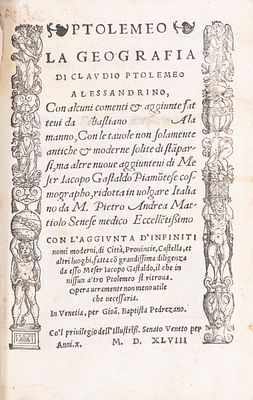 PTOLEMEO
LA GEOGRAFIA
DI CLAVDIO PTOLEMEO
ALESSANDRINO,
Con alcuni comenti & aggiunte fat
teui da Sebastiano munstero Ala
manno, Con le tauole non solamente
antiche & moderne solite di stāpar
si, ma altre nuoue aggiunteui di Me
ser Iacopo Gastaldo Piamōtese cos
mographo, ridotta in uolgare Italia
no da M. Pietro Andrea Mat
tiolo Senese medico Eccellētissimo
CON L'AGGIVNTA D'INFINITI
nomi moderni, di Città, Prouincie, Castella, et
altri luoghi, fatta cō grandissima diligenza
da esso Meser Iacopo Gastaldo, il che in
nissun altro Ptolemeo si ritroua.
Opera ueramente non meno utile
che necessaria.
In Venetia, per Gioā. Baptista Pedrezano.
Co'l priuilegio dell'Illustriss. Senato Veneto per
Anni. x. M. D. XLVIII